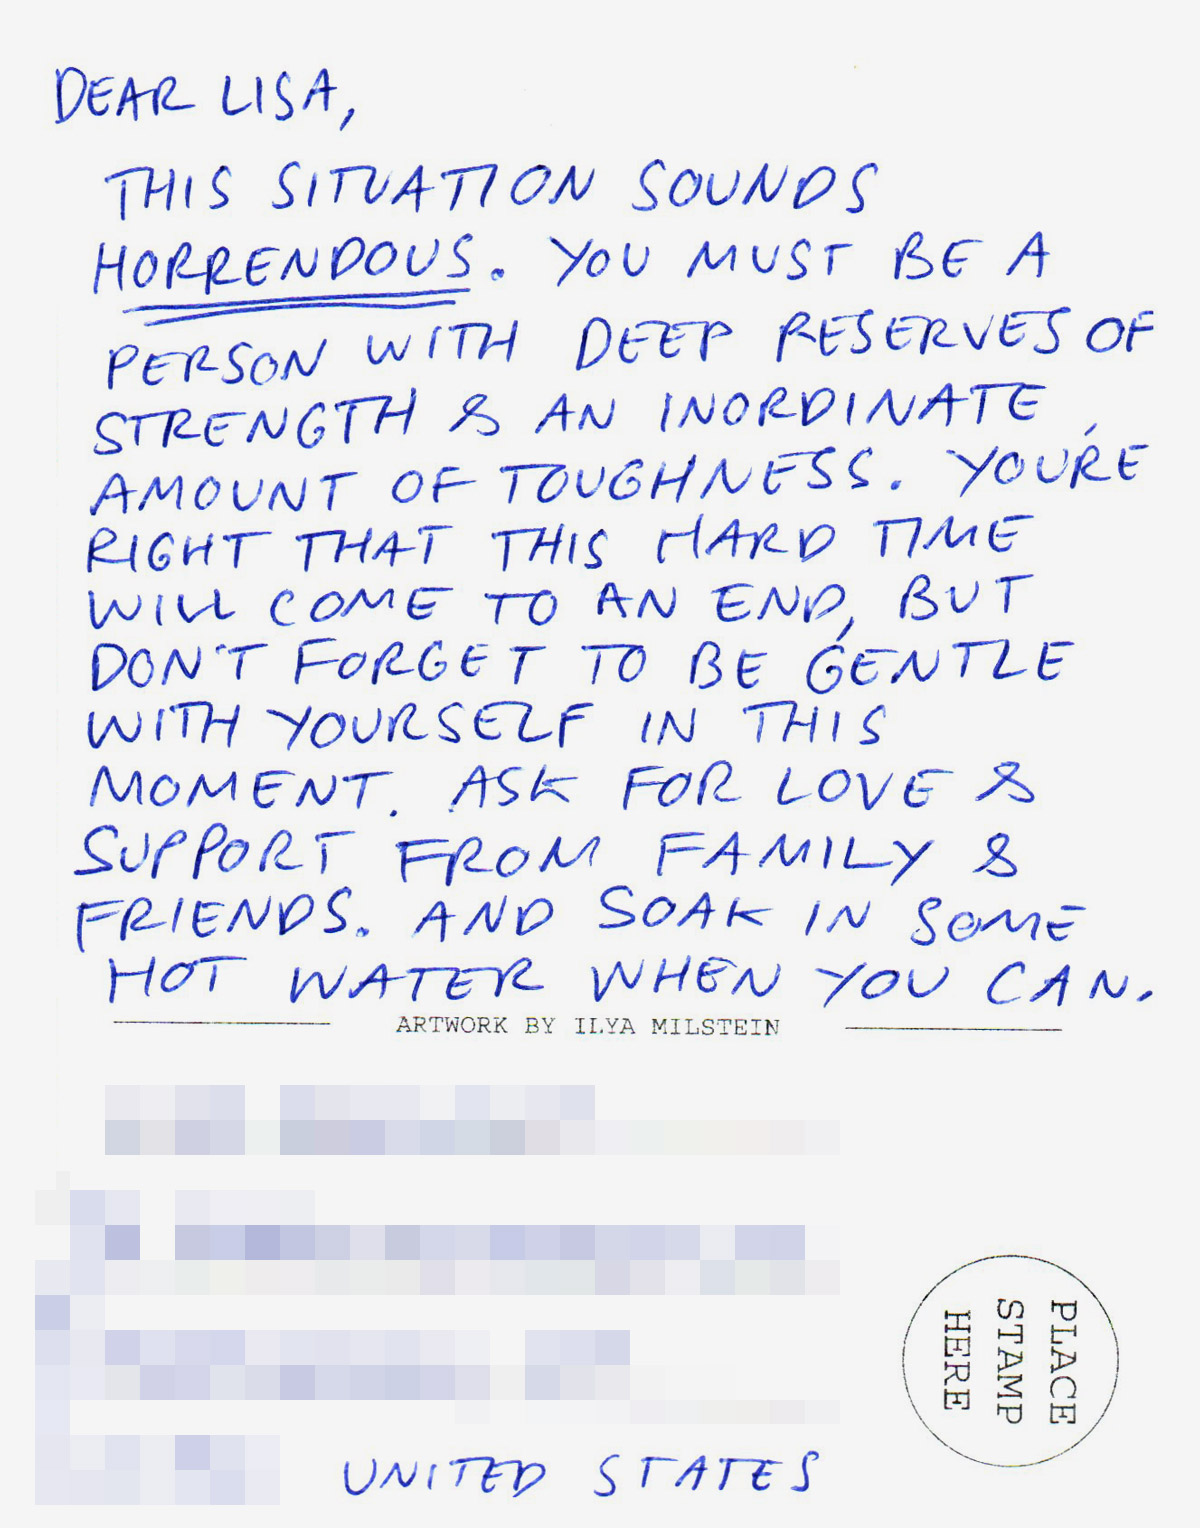 DEAR LISA,
THIS SITUATION SOUNDS
HORRENDOUS. YOU MUST BE A
PERSON WITH DEEP RESERVES OF
STRENGTH & AN INORDINATE
AMOUNT OF TOUGHNESS. YOU'RE
RIGHT THAT THIS HARD TIME
WILL COME TO AN END, BUT
DON'T FORGET TO BE GENTLE
WITH YOURSELF IN THIS
MOMENT. ASK FOR LOVE &
SUPPORT FROM FAMILY &
FRIENDS. AND SOAK IN SOME
HOT WATER WHEN YOU CAN.
ARTWORK BY ILYA MILSTEIN
PLACE
STAMP
HERE
UNITED STATES